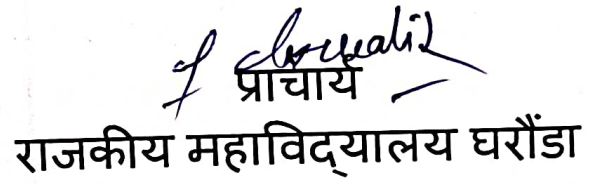 प्राचार्य
राजकीय महाविद्यालय घरौंडा